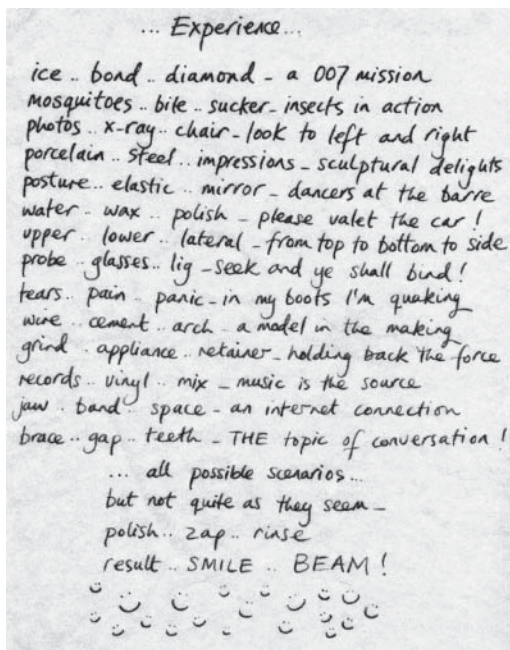 ... Experience...
ice .. bond .. diamond - a 007 mission
mosquitoes .. bite .. sucker - insects in action
photos .. x-ray .. chair - look to left and right
porcelain .. steel .. impressions - sculptural delights
posture .. elastic .. mirror - dancers at the barre
water .. wax .. polish - please valet the car !
upper .. lower .. lateral - from top to bottom to side
probe .. glasses .. lig - seek and ye shall bind !
tears .. pain .. panic - in my boots I'm quaking
wire .. cement .. arch - a model in the making
grind .. appliance .. retainer - holding back the force
records .. vinyl .. mix - music is the source
jaw .. band .. space - an internet connection
brace .. gap .. teeth - THE topic of conversation !
... all possible scenarios ...
but not quite as they seem -
polish .. zap .. rinse
result .. SMILE .. BEAM !